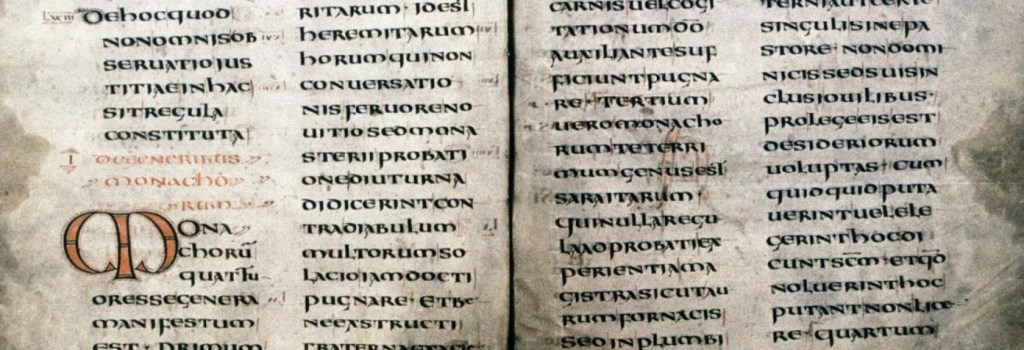 Lxxiii De hoc quod
non omnis ob
seruatio ius
titiae in hac
sit regula
constituta
I de generibus
monacho
rum
Mona
chorū
quattu
or esse genera
manifestum
est · primum
ritarum · id est
heremitarum
horum qui non
conuersatio
nis feruore no
uitio sed mona
sterii probati
one diuturna
didicerint con
tra diabulum
multorum so
lacio iam docti
pugnare · et be
ne exstructi
fraterna
carnis uel cogi
tationum dō
auxiliante suf
ficiunt pugna
re · tertium
uero monacho
rum teterri
mum genus est
saraitarum
qui nulla regu
la adprobati ex
perientia ma
gistra sicut au
rum fornacis
sed in plumbi
terni aut certe
singuli sine pa
store · non domi
nicis sed suis in
clusi ouilibus ·
pro lege eis est
desideriorum
uoluptas · cum
quidquid puta
uerint uel ele
gerint hoc di
cunt sc̄m · et qd̄
noluerint hoc
putant non lice
re · quartum